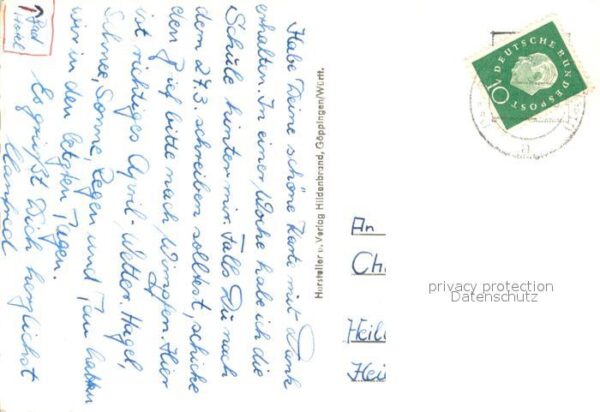 Habe Deine schöne Karte mit Dank
erhalten. In einer Woche habe ich die
Schule hinter mir. Falls Du nach
dem 27.3. schreiben solltest, schicke
den Brief bitte nach Wimpfen. Hier
ist richtiges April-Wetter. Hagel,
Schnee, Sonne, Regen und Tau hatten
wir in den letzten Tagen.
Es grüßt Dich herzlichst
Manfred
Bad
Hersteller u. Verlag Hildenbrand, Göppingen/Württ.
DEUTSCHE BUNDESPOST
An
Ch
Heil
Hei
privacy protection
Datenschutz